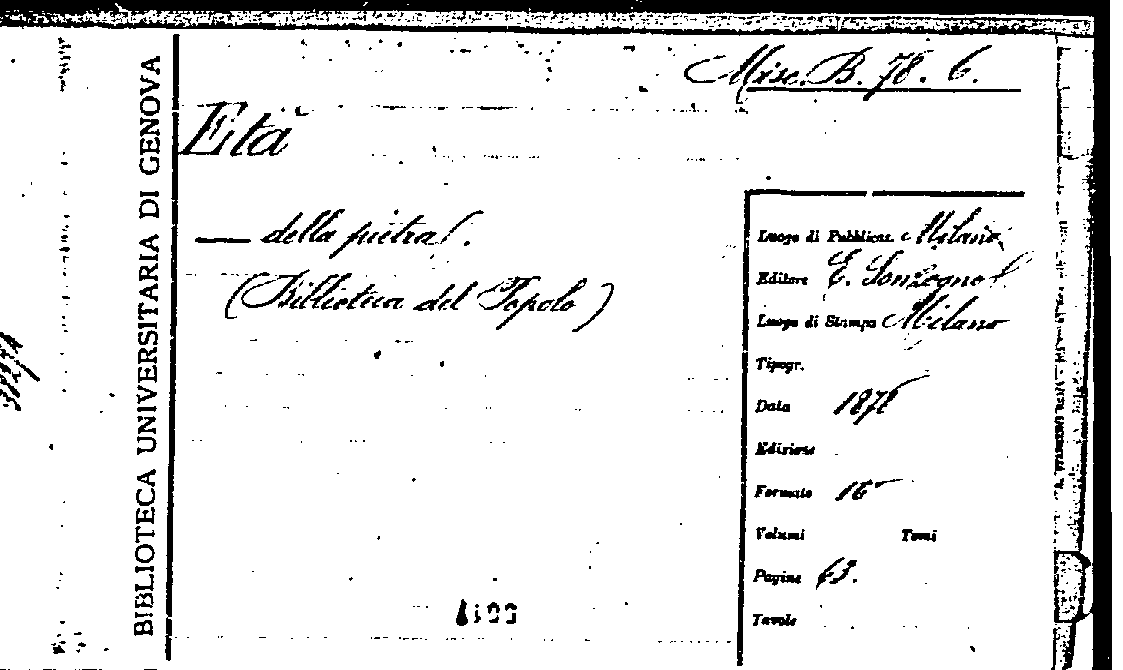 Misc. B. 78. 6.
BIBLIOTECA UNIVERSITARIA DI GENOVA
Età
— della pietra.
(Biblioteca del Popolo)
Luogo di Pubblicaz. Milano
Editore E. Sonzogno
Luogo di Stampa Milano
Tipogr.
Data
Edizione
Formato 16°
Volumi Tomi
Pagine 63.
Tavole